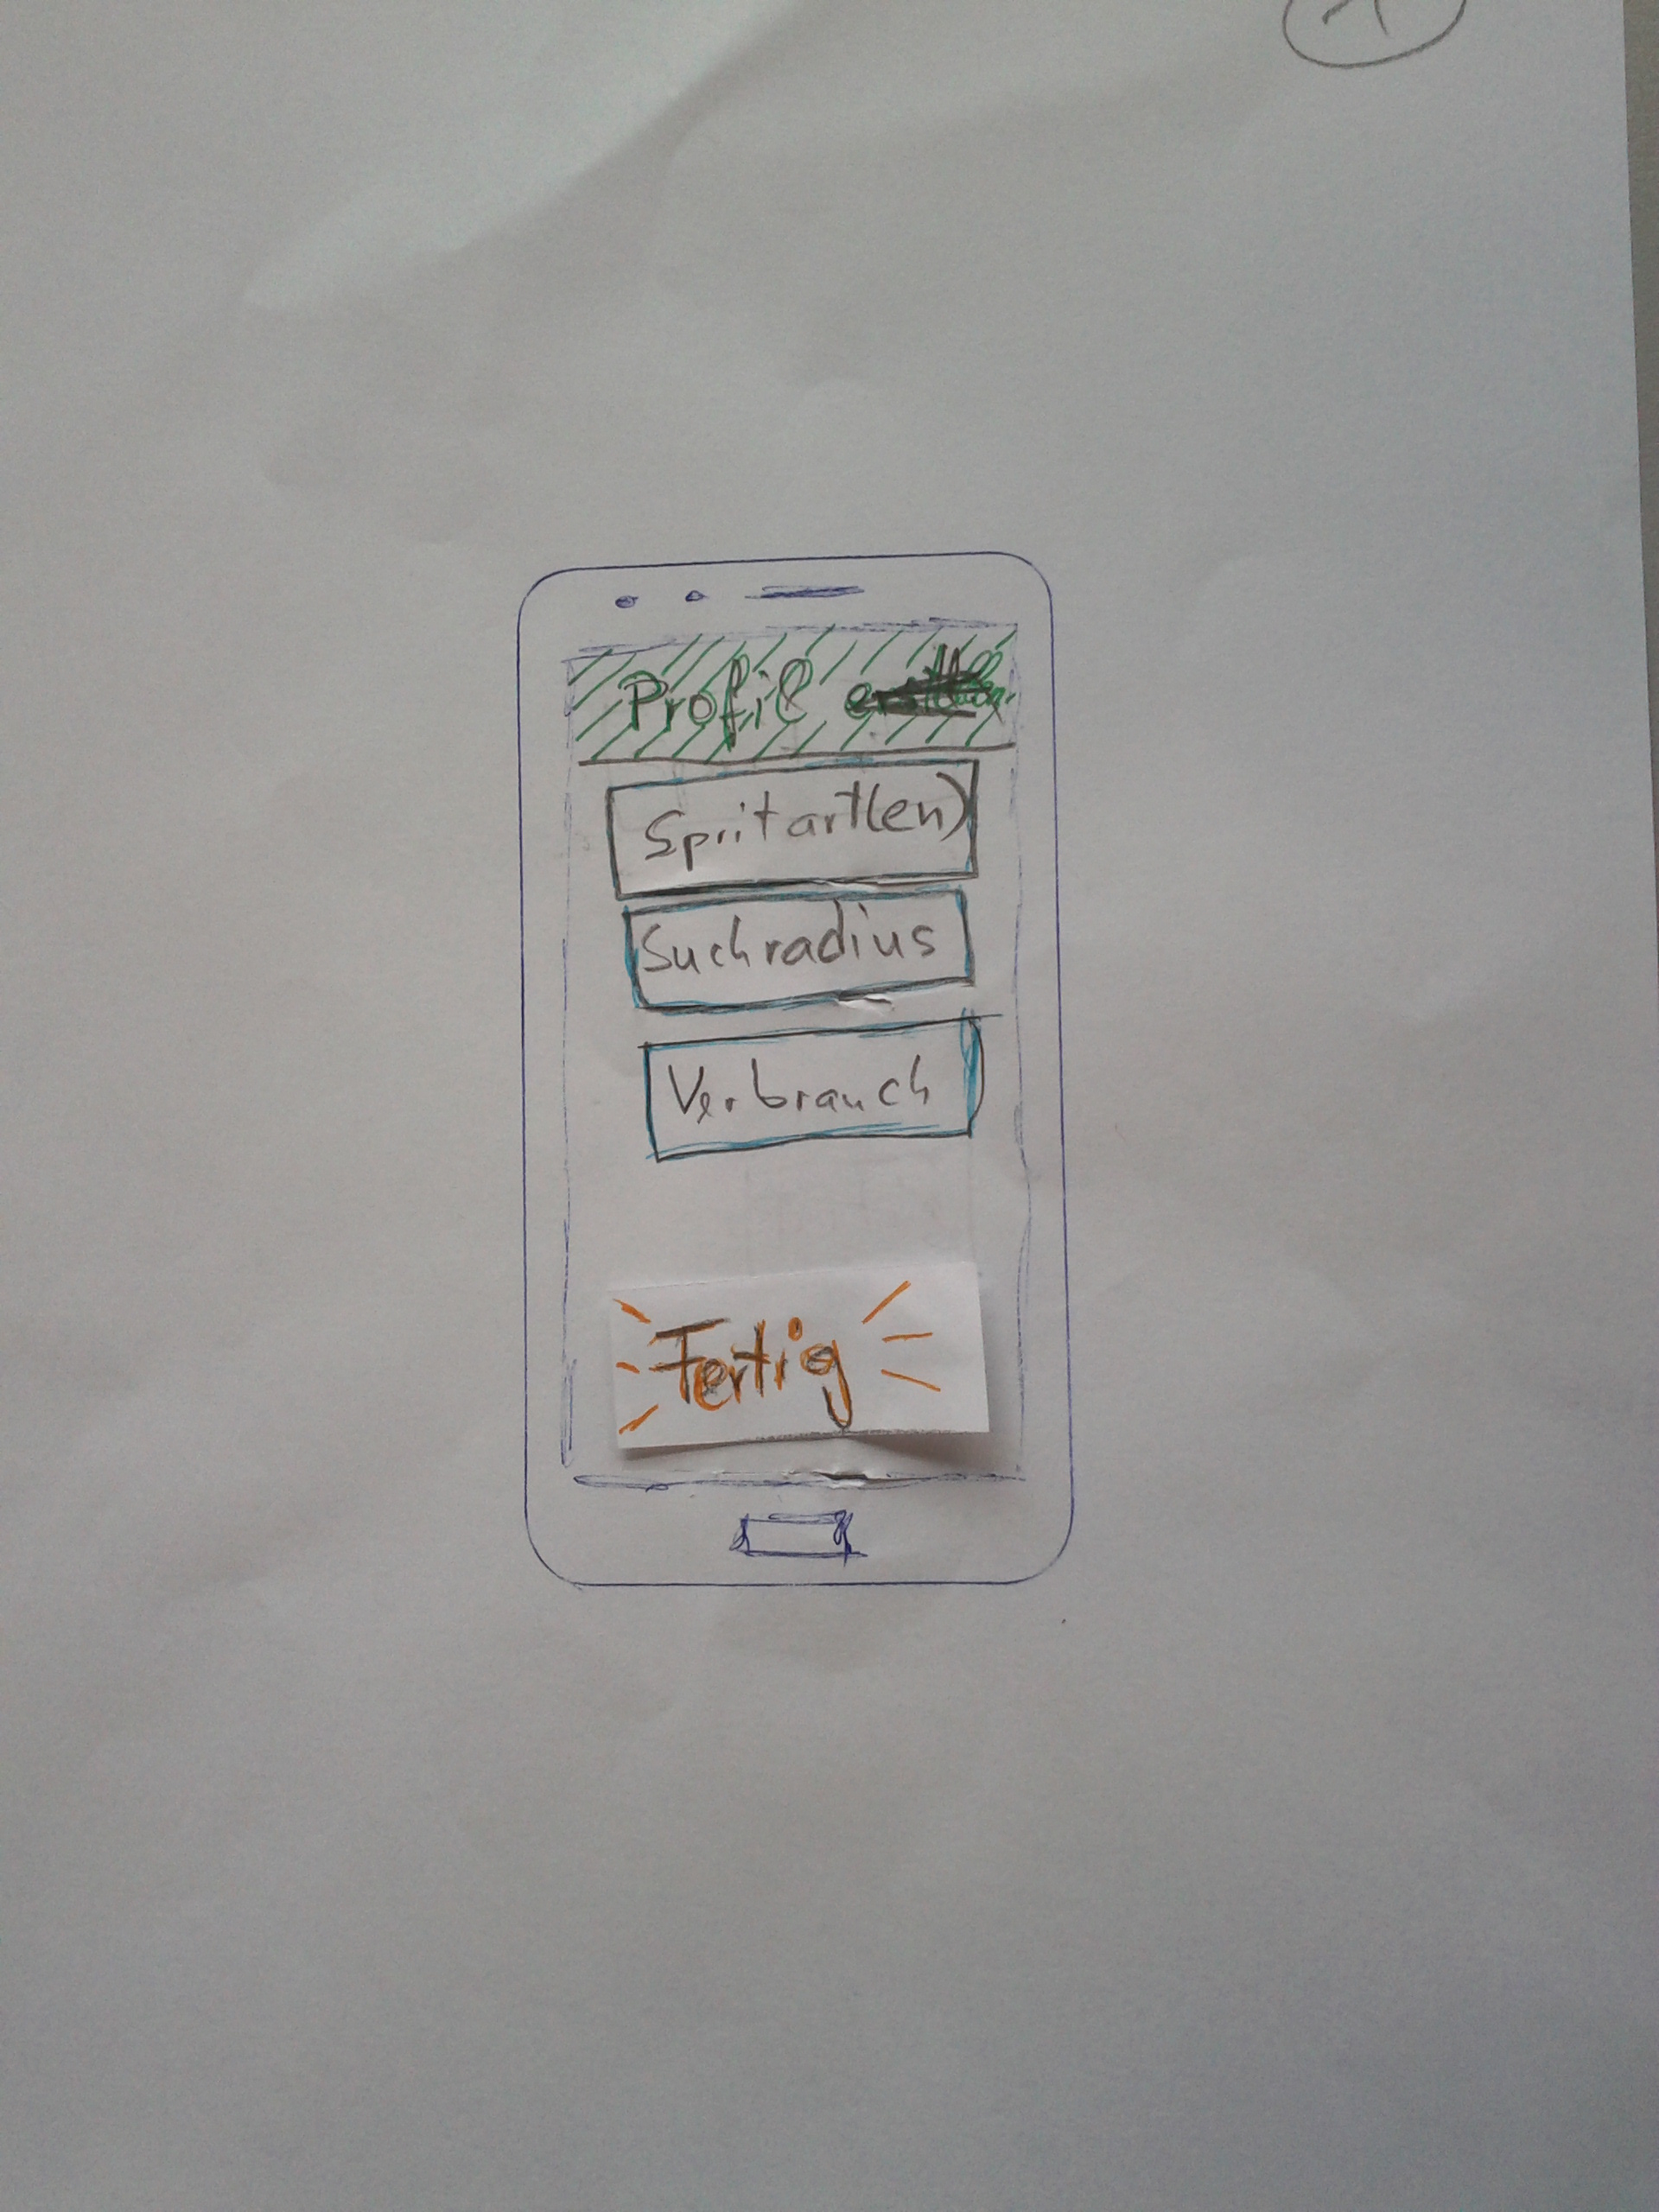 Profil
Spritart(en)
Suchradius
Verbrauch
Fertig